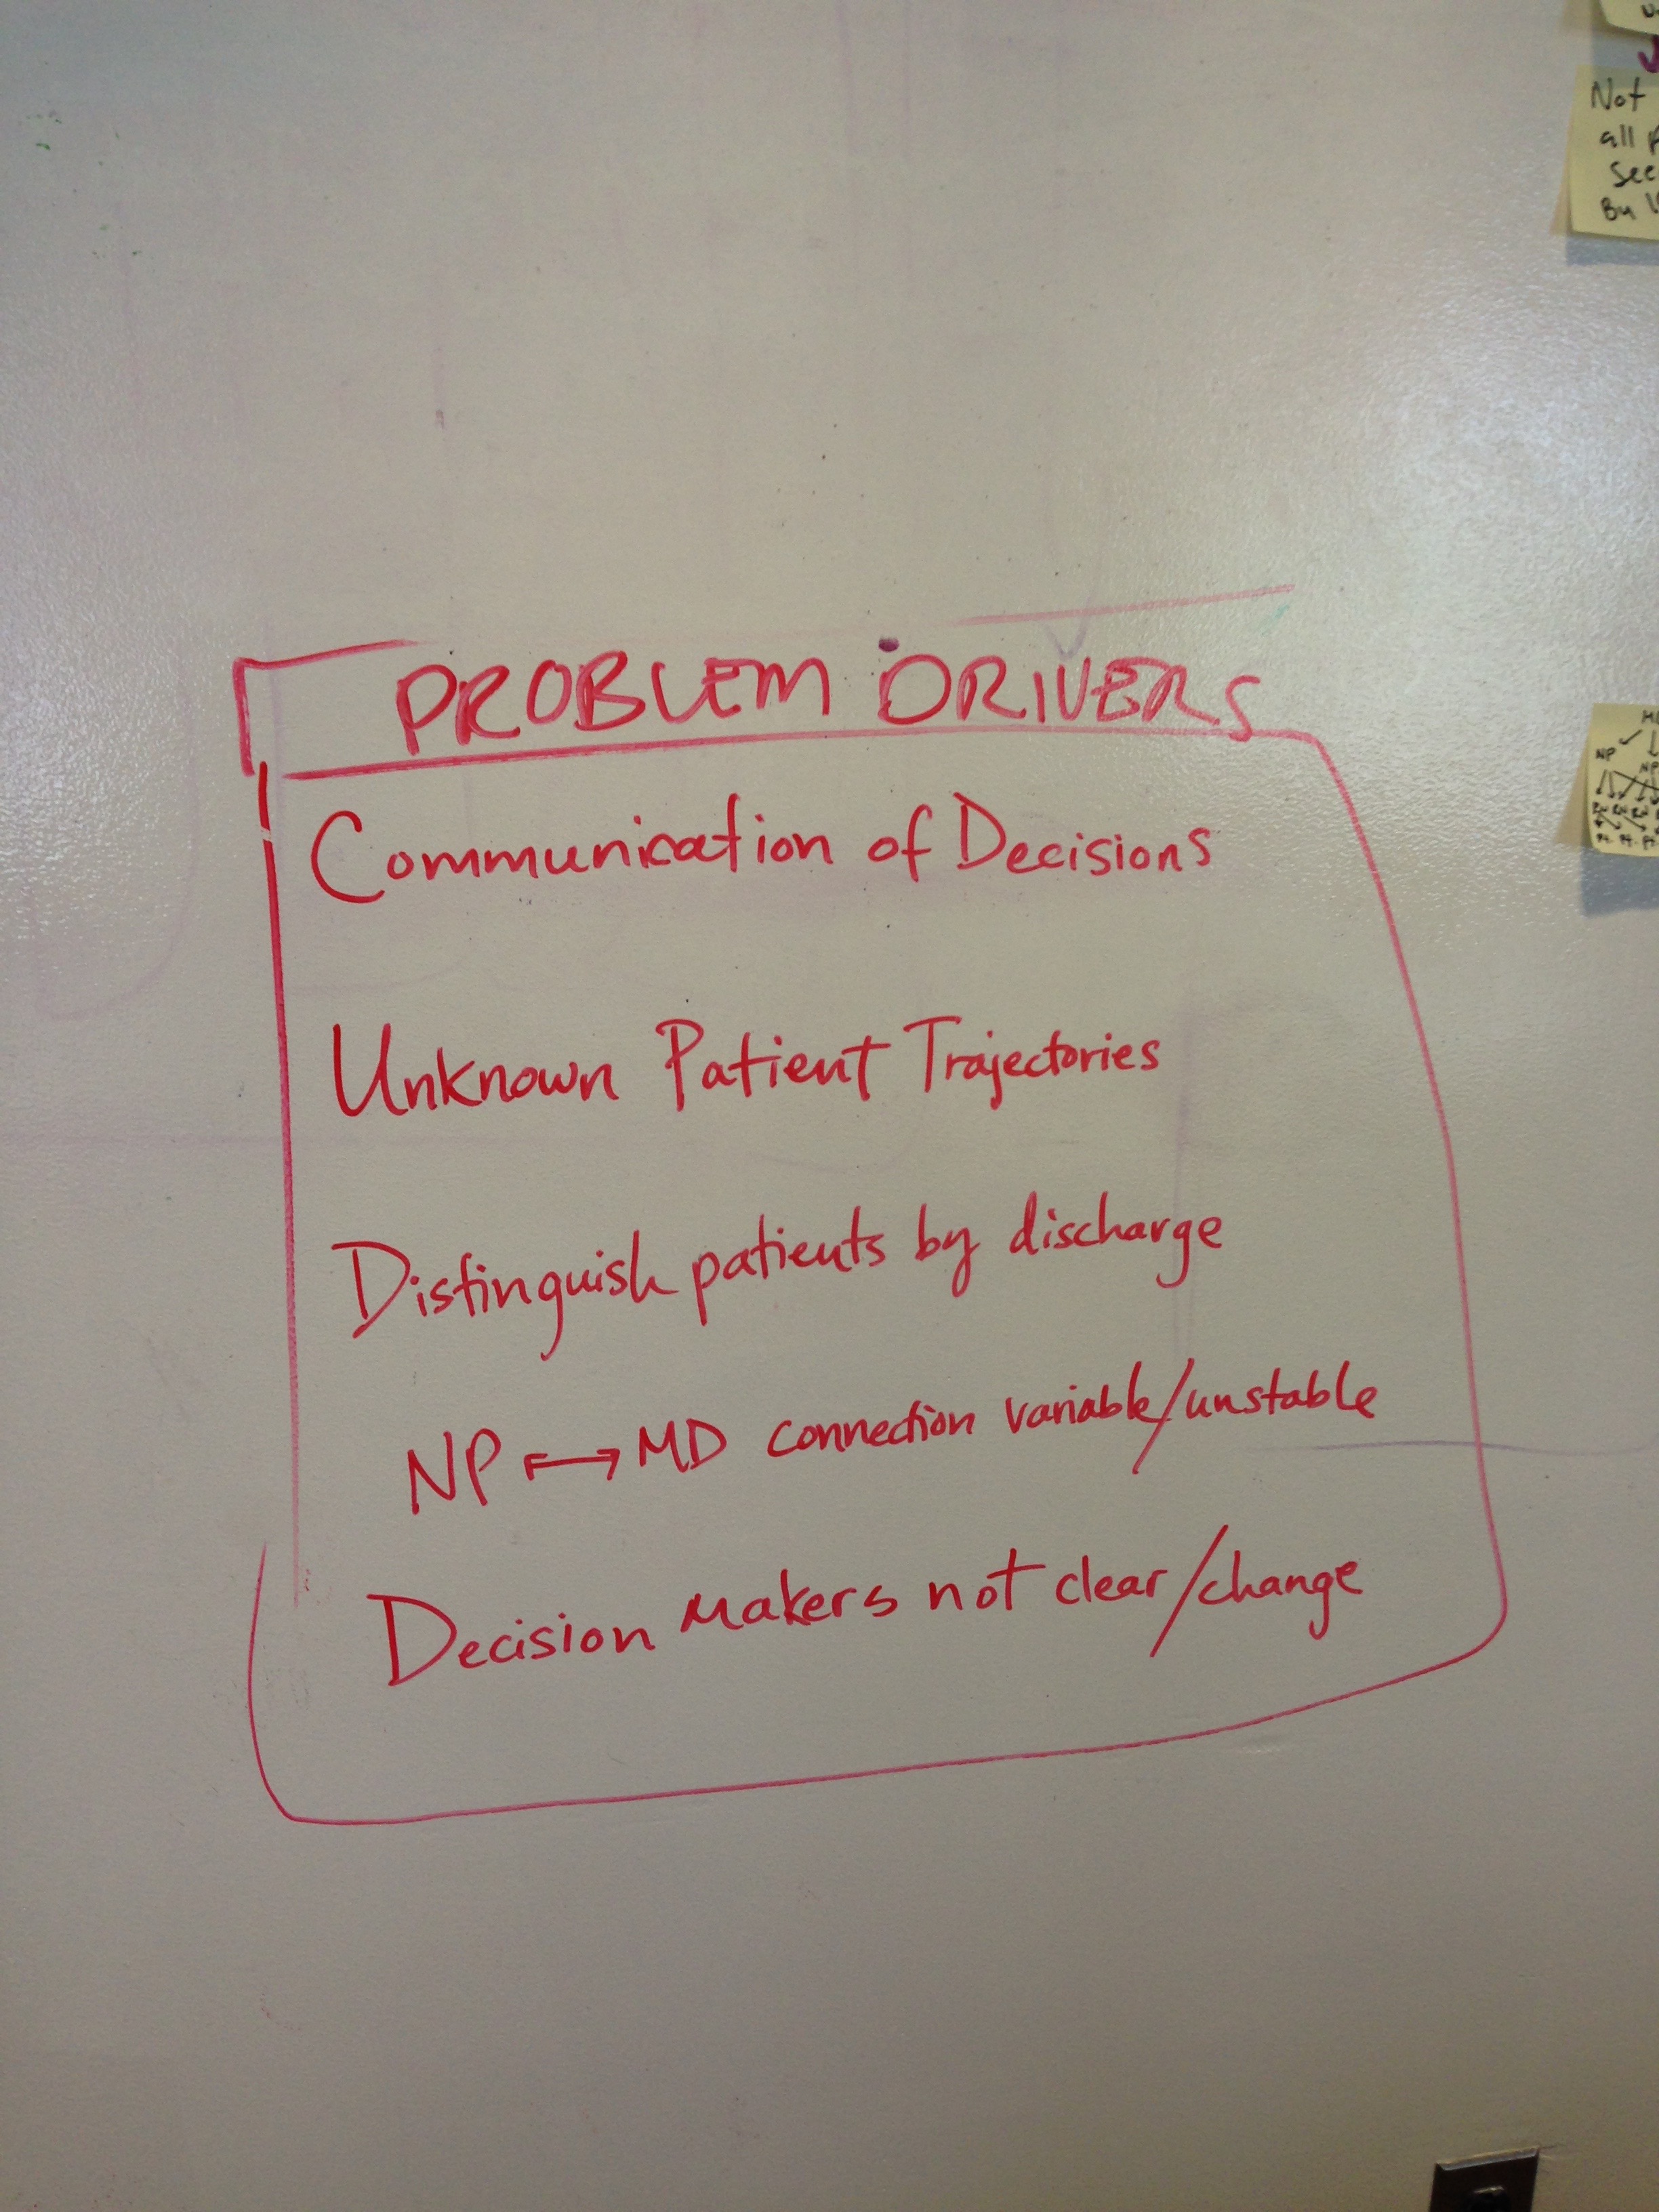 PROBLEM DRIVERS
Communication of Decisions
Unknown Patient Trajectories
Distinguish patients by discharge
NP ↔ MD connection variable/unstable
Decision Makers not clear/change
Not
all
By
NP